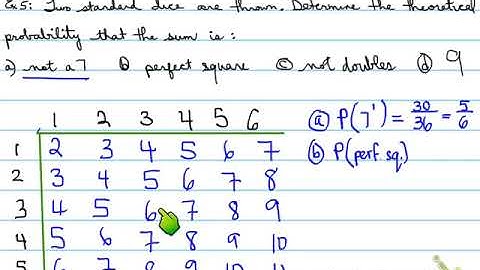 Ex 5: Two standard dice are thrown. Determine the theoretical
probability that the sum is:
a) not a 7 b) perfect square c) not doubles d) 9
1 2 3 4 5 6
1 2 3 4 5 6 7
2 3 4 5 6 7 8
3 4 5 6 7 8 9
4 5 6 7 8 9 10
5 6 7 8 9 10 11
a) P(7') = 30/36 = 5/6
b) P(perf. sq.)